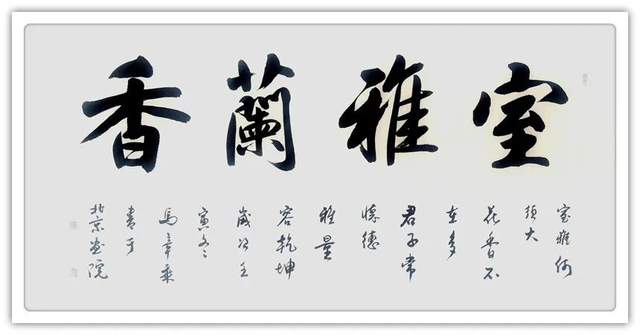 室雅蘭香
室雅何
須大
花香不
在多
君子常
懷德
雅量
容乾坤
歲次壬
寅冬
馬章乘
書于
北京画院